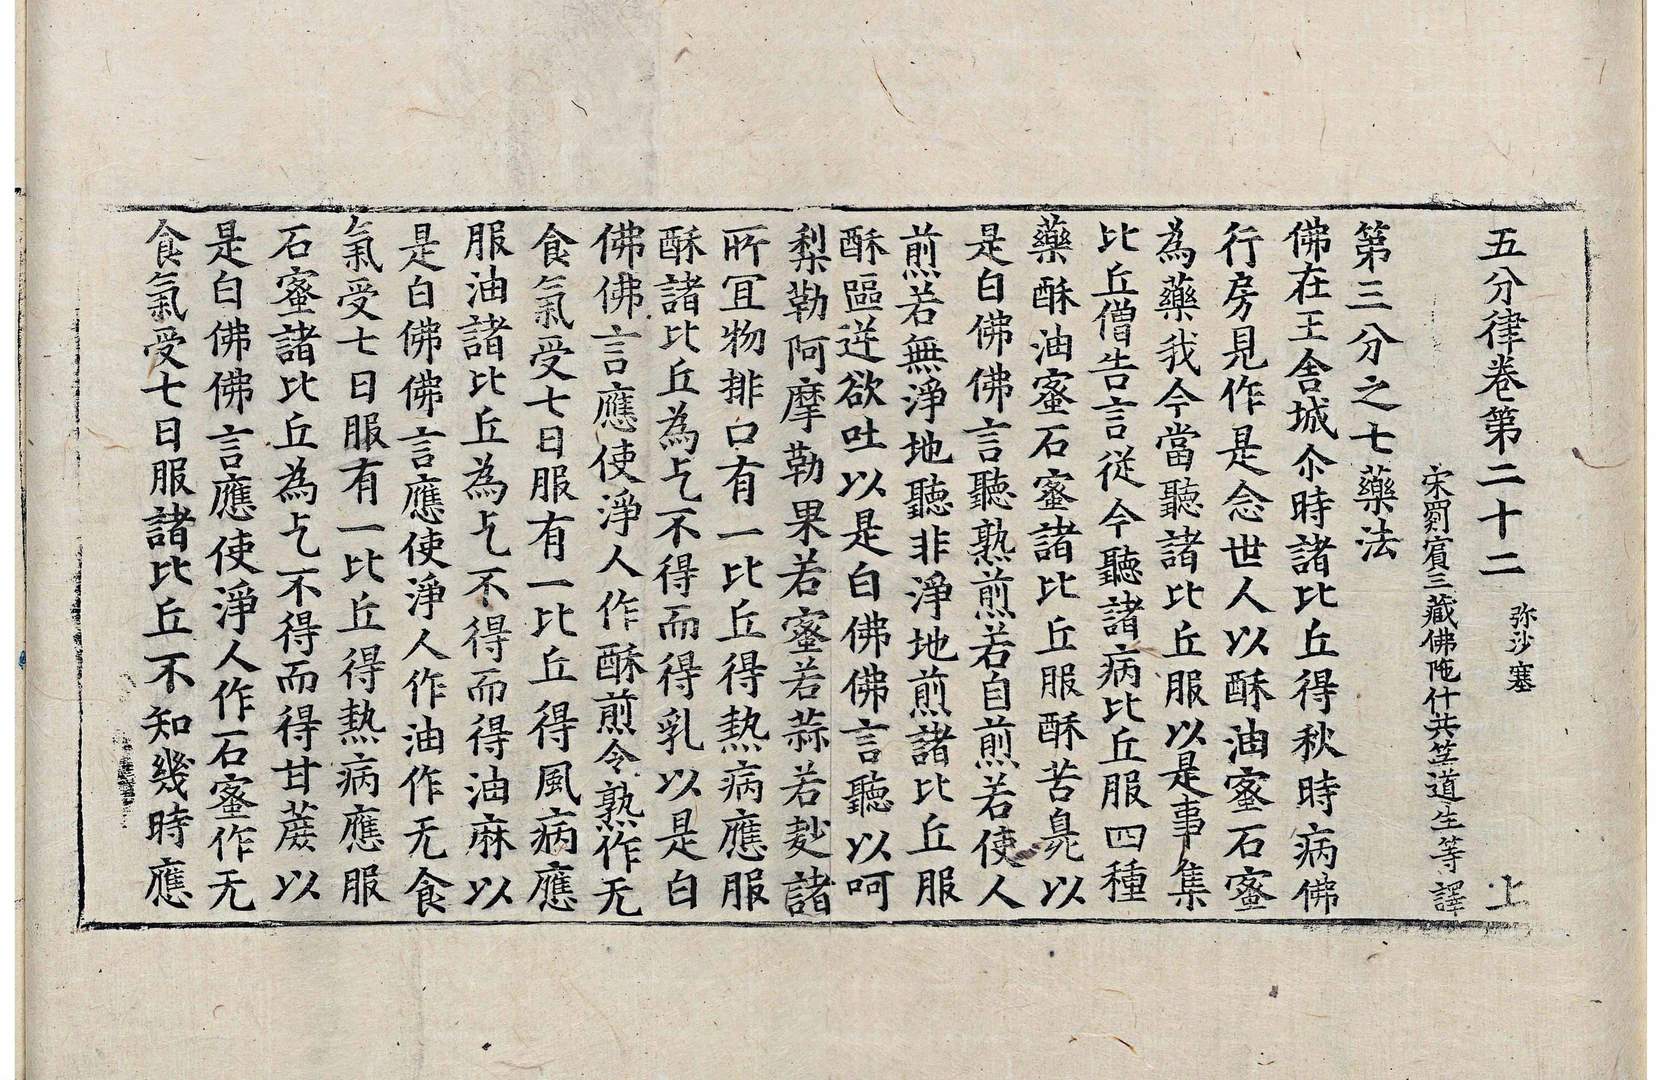 五分律卷第二十二 弥沙塞 上
宋罽賓三藏佛陁什共竺道生等譯
第三分之七藥法
佛在王舍城尒時諸比丘得秋時病佛
行房見作是念世人以酥油蜜石蜜
為藥我今當聽諸比丘服以是事集
比丘僧告言從今聽諸病比丘服四種
藥酥油蜜石蜜諸比丘服酥苦臭以
是白佛佛言聽熟煎若自煎若使人
煎若無淨地聽非淨地煎諸比丘服
酥區逆欲吐以是白佛佛言聽以呵
梨勒阿摩勒果若蜜若蒜若麨諸
所冝物排口有一比丘得熱病應服
酥諸比丘為乞不得而得乳以是白
佛佛言應使淨人作酥煎令熟作无
食氣受七日服有一比丘得風病應
服油諸比丘為乞不得而得油麻以
是白佛佛言應使淨人作油作无食
氣受七日服有一比丘得熱病應服
石蜜諸比丘為乞不得而得甘蔗以
是白佛佛言應使淨人作石蜜作无
食氣受七日服諸比丘不知幾時應